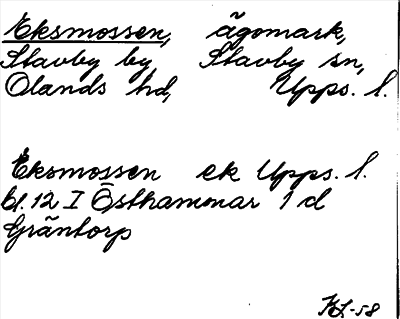 Eksmossen, ägomark,
Stavby by, Stavby sn,
Olands hd, Upps. l.
Eksmossen ek Upps. l.
bl. 12 I Östhammar 1 d
Gräntorp
KL-58